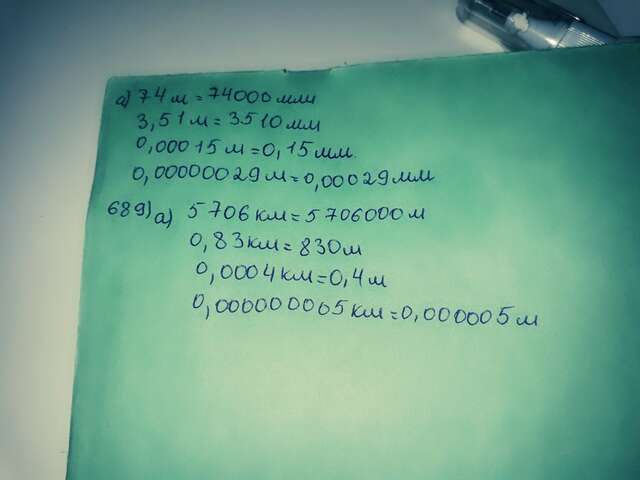 а) 74 м = 74000 мм
3,51 м = 3510 мм
0,00015 м = 0,15 мм.
0,00000029 м = 0,00029 мм
689) а) 5706 км = 5706000 м
0,83 км = 830 м
0,0004 км = 0,4 м
0,000000005 км = 0,000005 м